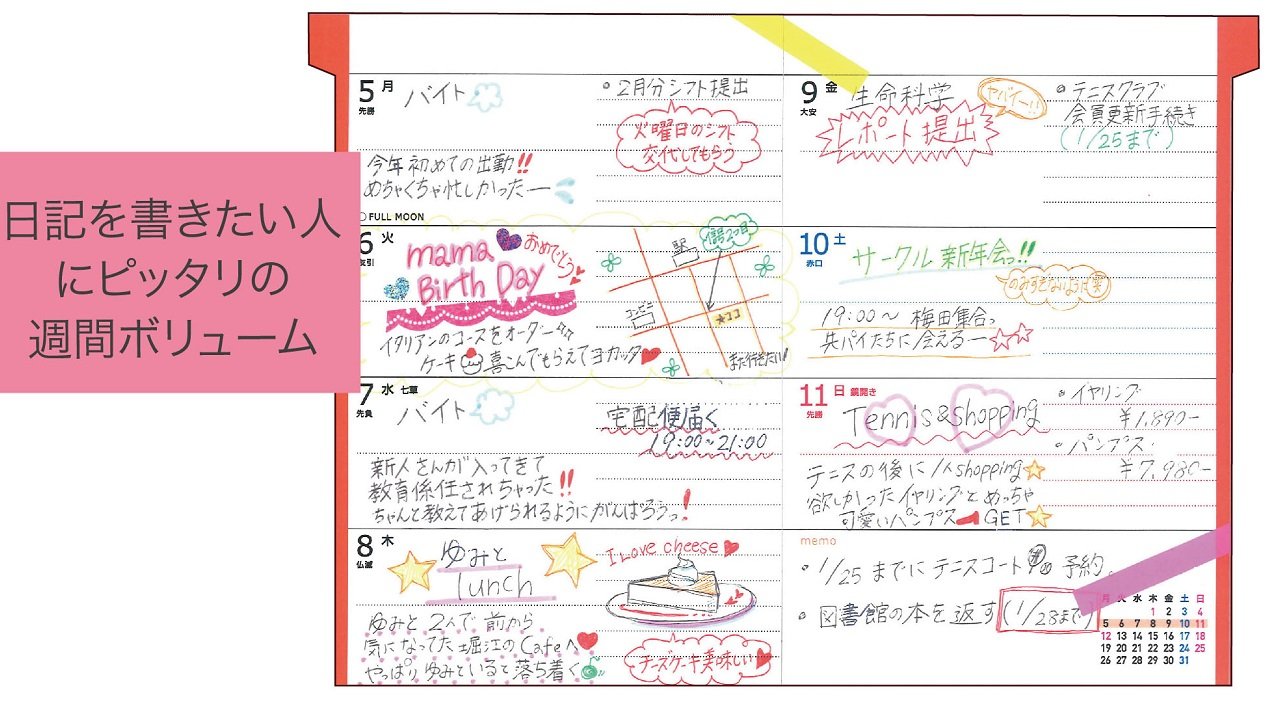 日記を書きたい人
にピッタリの
週間ボリューム
5 月
先勝
バイト
・2月分シフト提出
火曜日のシフト
交代してもらう
今年初めての出勤!!
めちゃくちゃ忙しかったー
○FULL MOON
6 火
友引
mama
Birth Day
おめでとう
イタリアンのコースをオーダー
ケーキ 喜こんでもらえてヨカッタ
駅
信号2つ目
コンビニ
★ココ
また行きたい!
7 水 七草
先負
バイト
宅配便届く
19:00~21:00
新人さんが入ってきて
教育係任されちゃった!!
ちゃんと教えてあげられるようにがんばろうっ!
8 木
仏滅
ゆみと
lunch
I Love cheese
ゆみと2人で、前から
気になってた堀江のCafeへ
やっぱりゆみといると落ち着く
チーズケーキ美味しい
9 金
大安
生命科学
ヤバイー!!
レポート提出
・テニスクラブ
会員更新手続き
(1/25まで)
10 土
赤口
サークル新年会っ!!
のみすぎないように
19:00~ 梅田集合っ
共バイたちに会えるー
11 日 鏡開き
先勝
Tennis&shopping
・イヤリング
¥1,890-
・パンプス
¥7,980-
テニスの後に shopping
欲しかったイヤリングとめっちゃ
可愛いパンプス GET
memo
・1/25までにテニスコート 予約
・図書館の本を返す(1/28まで)
月 火 水 木 金 土 日
1 2 3 4
5 6 7 8 9 10 11
12 13 14 15 16 17 18
19 20 21 22 23 24 25
26 27 28 29 30 31